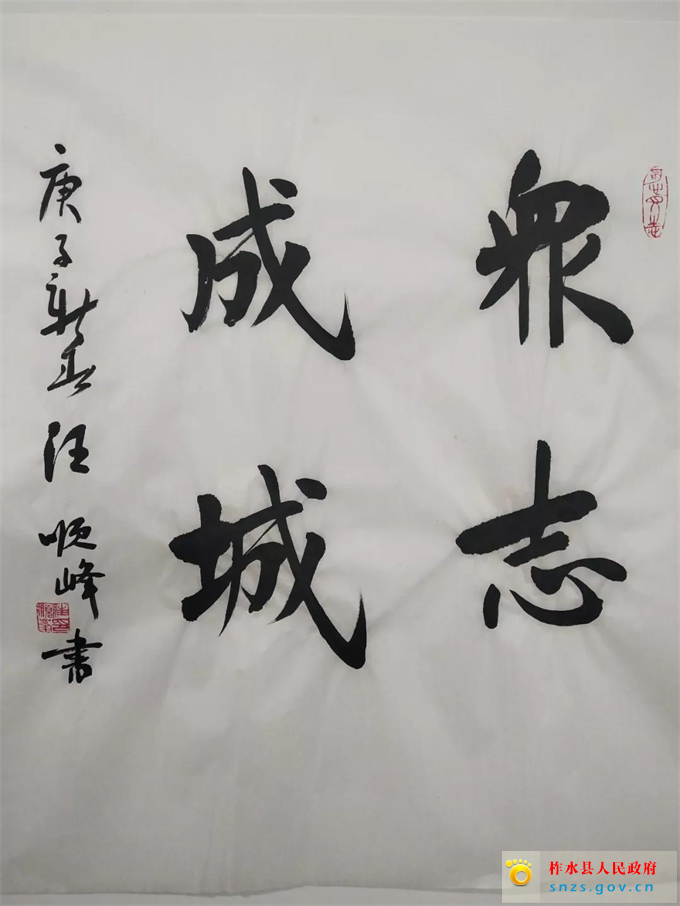 眾志
成城
庚子新春汪順峰書
柞水县人民政府
snzs.gov.cn